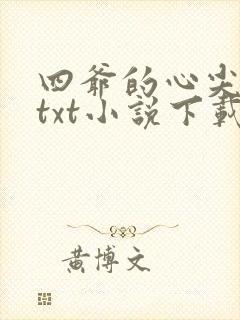 四爺的心尖
txt小說下載
黃博文